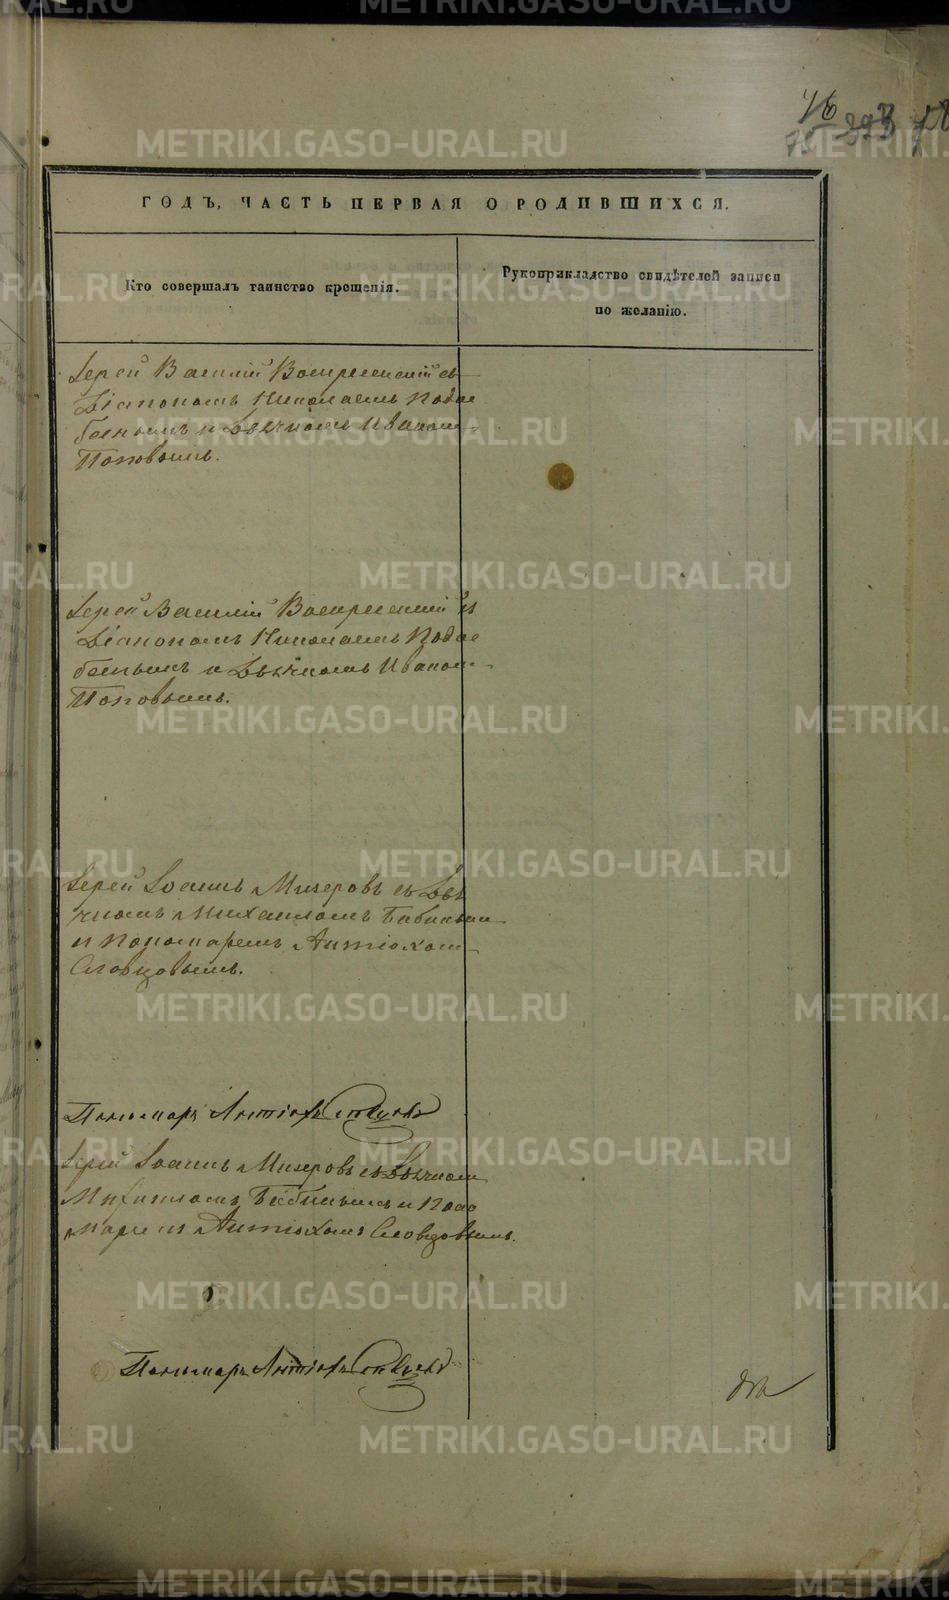 METRIKI.GASO-URAL.RU
46
393
ГОДЪ, ЧАСТЬ ПЕРВАЯ О РОДИВШИХСЯ.
Кто совершалъ таинство крещенія.
Рукоприкладство свидѣтелей записи
по желанію.
Іерей Василій Воскресенскій съ
Діакономъ Николаемъ Подъе
бенымъ и Дьячкомъ Иваномъ
Поповымъ.
Іерей Василій Воскресенскій съ
Діакономъ Николаемъ
и Дьячкомъ Иваномъ
Поповымъ.
Іерей Іоаннъ Мизеровъ съ Дья
чкомъ Михаиломъ Бабинымъ
и пономаремъ Антіохомъ
Словцовымъ.
Пономарь Антіохъ Словцовъ
Іерей Іоаннъ Мизеровъ съ Дьячкомъ
Михаиломъ Бабинымъ и Поно
маремъ Антіохомъ Словцовымъ.
Пономарь Антіохъ Словцовъ